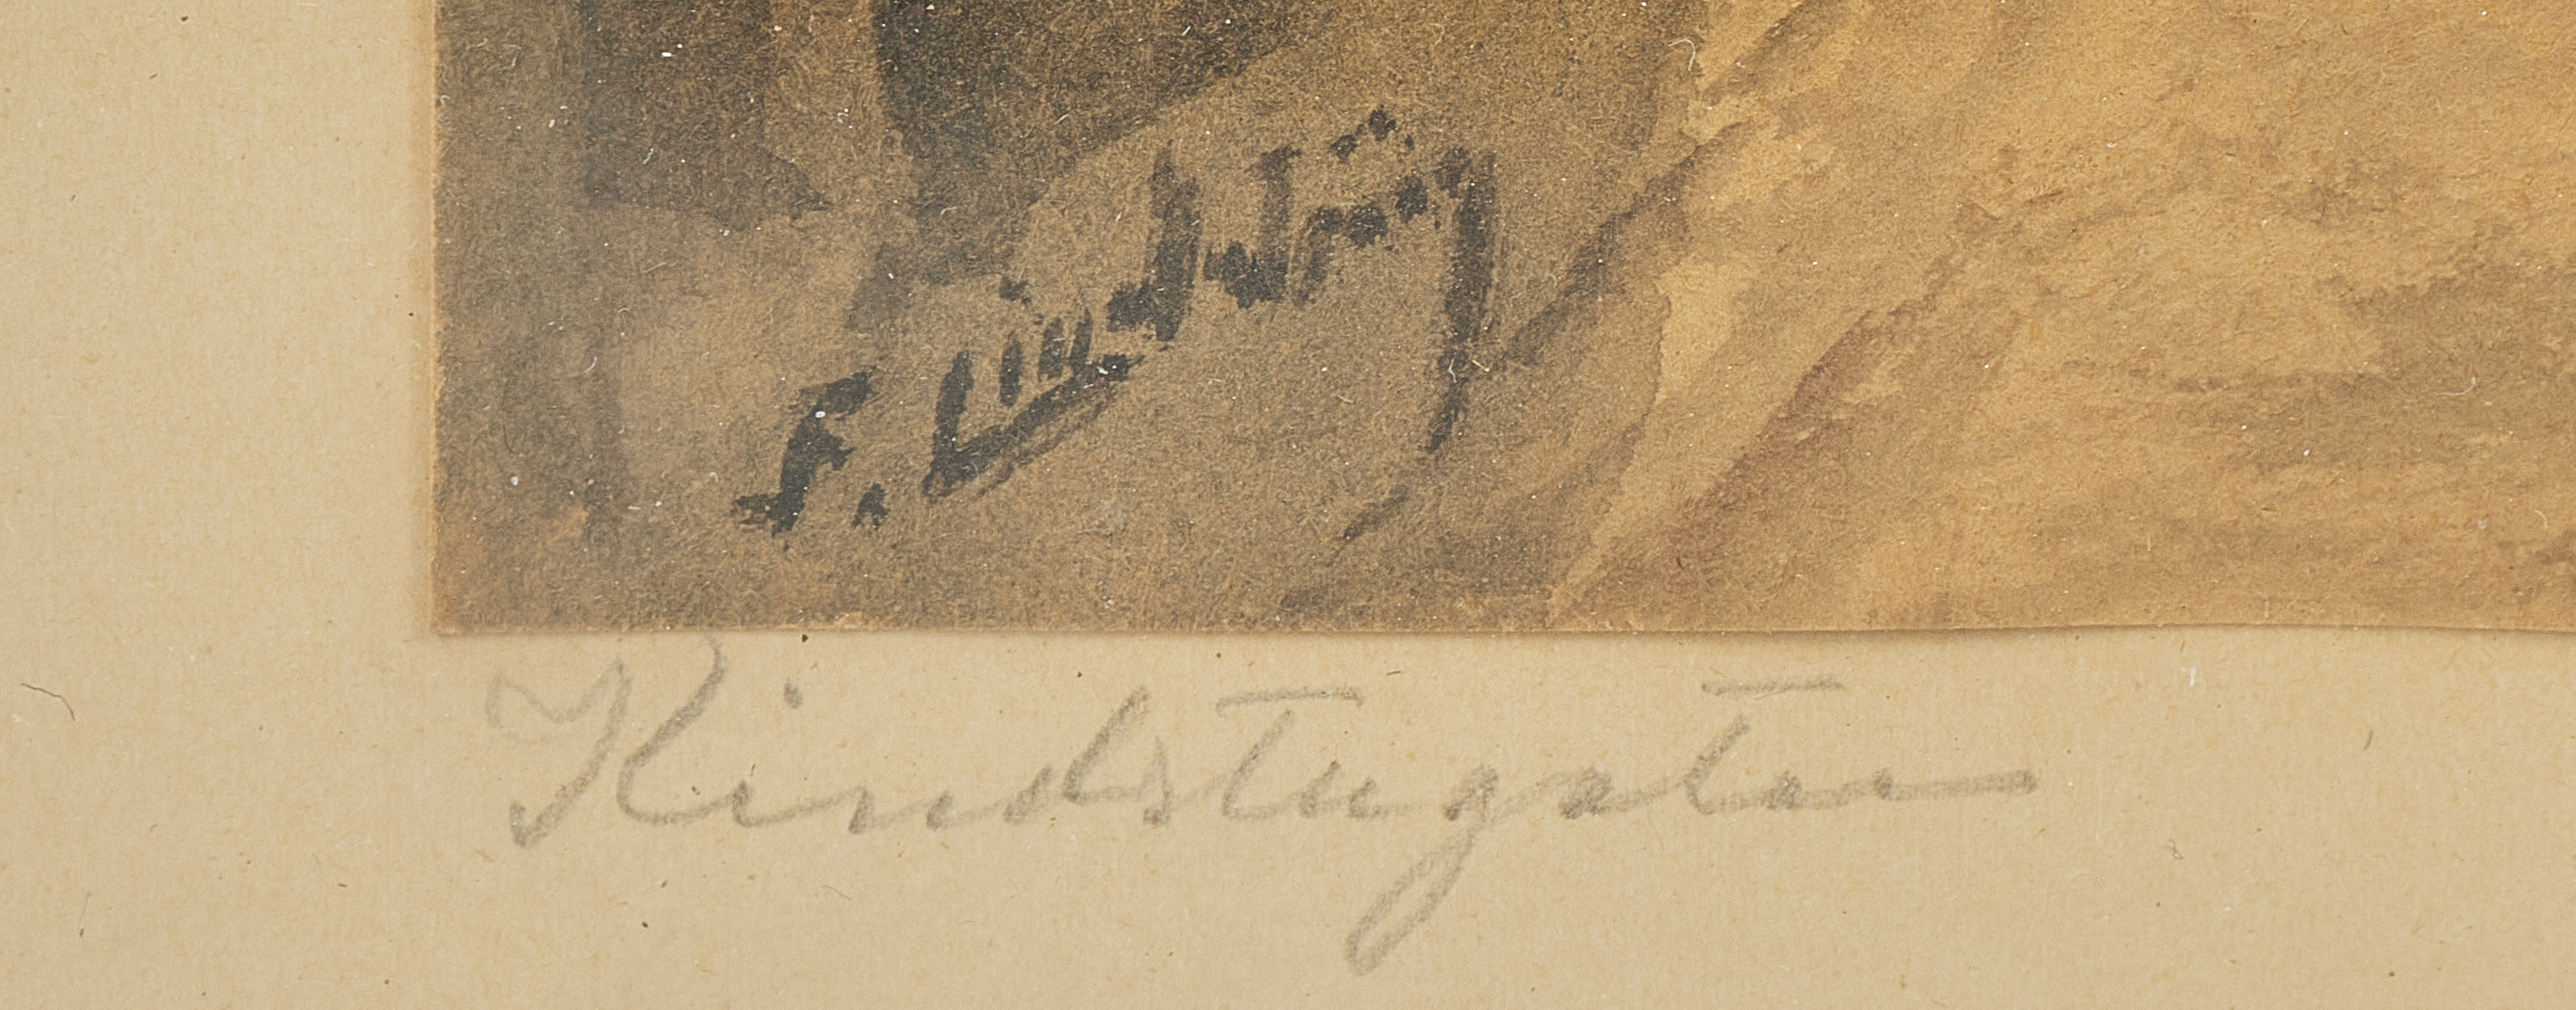 F. Lindströ
Kindstugatan